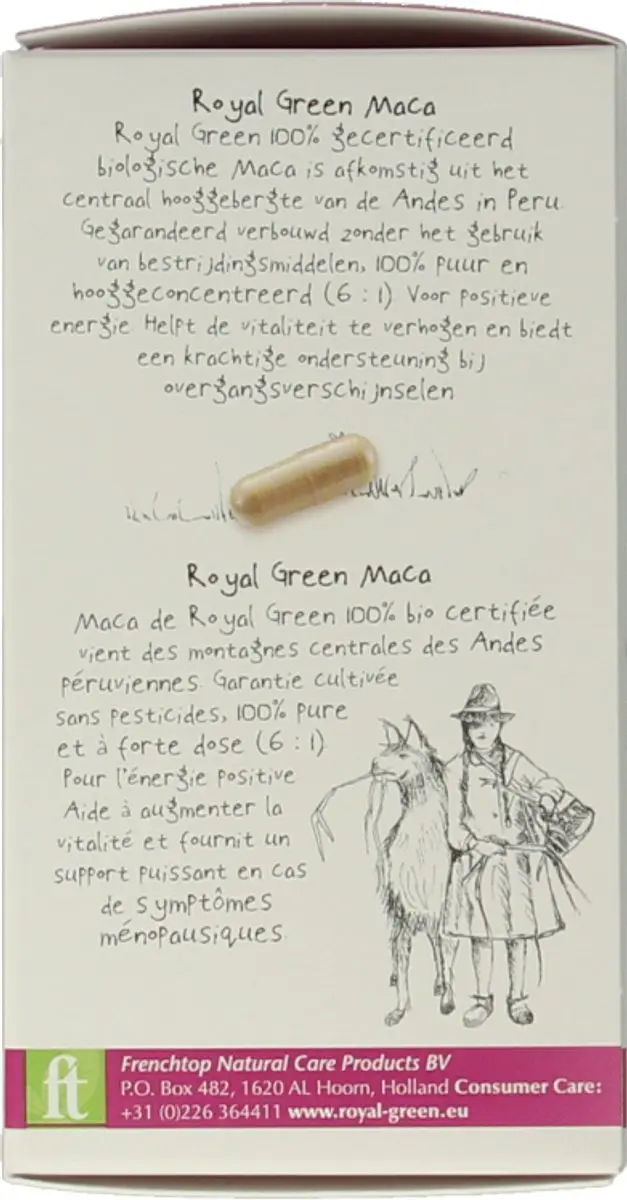 Royal Green Maca
Royal Green 100% gecertificeerd
biologische Maca is afkomstig uit het
centraal hooggebergte van de Andes in Peru.
Gegarandeerd verbouwd zonder het gebruik
van bestrijdingsmiddelen, 100% puur en
hooggeconcentreerd (6 : 1). Voor positieve
energie. Helpt de vitaliteit te verhogen en biedt
een krachtige ondersteuning bij
overgangsverschijnselen.
Royal Green Maca
Maca de Royal Green 100% bio certifiée
vient des montagnes centrales des Andes
péruviennes. Garantie cultivée
sans pesticides, 100% pure
et à forte dose (6 : 1).
Pour l'énergie positive.
Aide à augmenter la
vitalité et fournit un
support puissant en cas
de symptômes
ménopausiques.
ft
Frenchtop Natural Care Products BV
P.O. Box 482, 1620 AL Hoorn, Holland Consumer Care:
+31 (0)226 364411 www.royal-green.eu